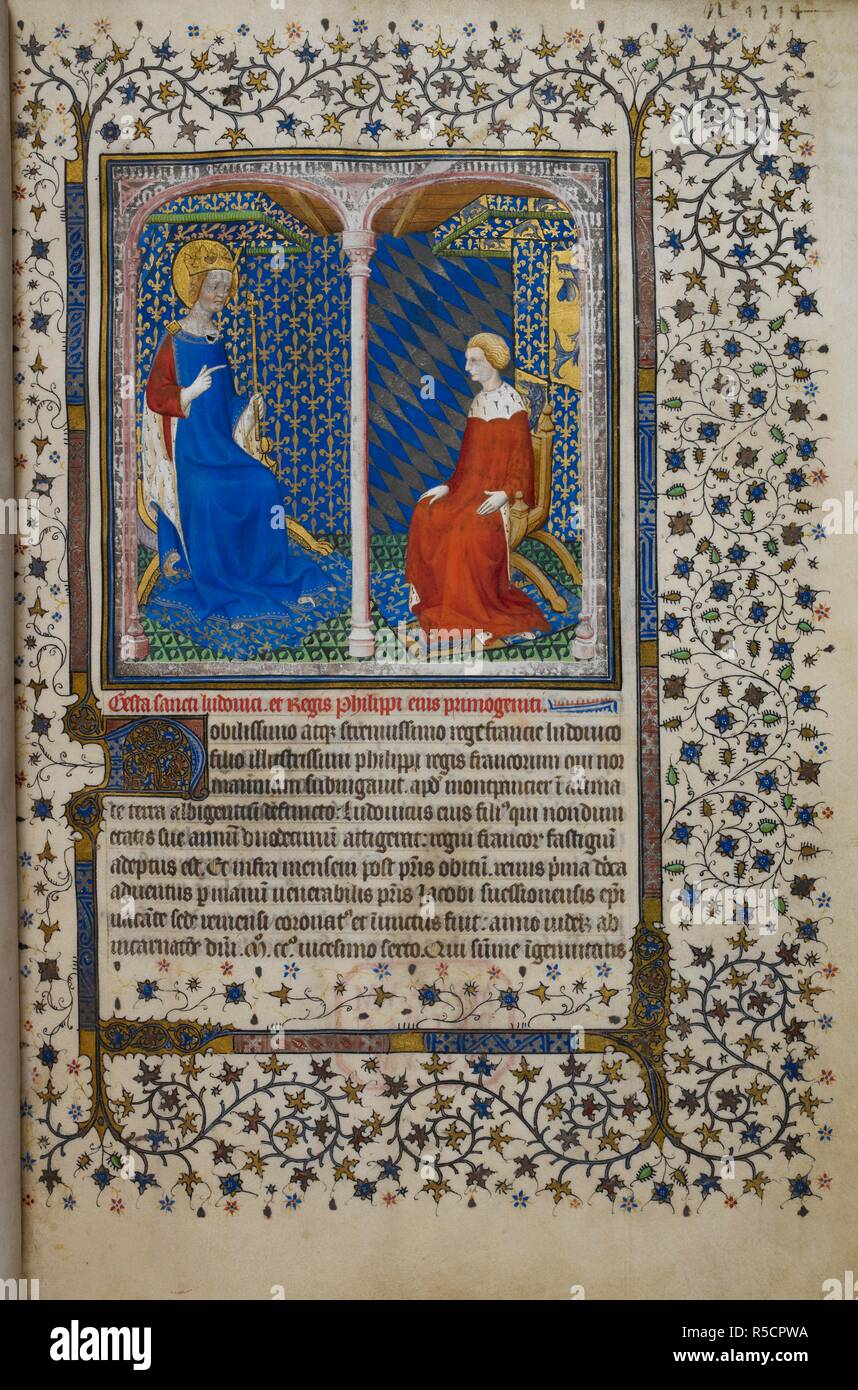 Nº 1214
Gesta sancti ludovici. et Regis Philippi eius primogeniti.
Nobilissimo atqz strenuissimo rege francie ludovico
filio illustrissimi philippi regis francorum qui nor
manniam subiugavit. apd' montpancier ī avernia
de terra albigentiū defuncto: Ludovicus eius fili9 qui nondum
etatis sue annū duodecimū attigerat: regni francor' fastigiū
adeptus est. Et infra mensem post pr̄is obitū.
adventus p manū venerabilis pr̄is Iacobi suessionensis ep̄i
vacāte sede remensi coronat9 et īunctus fuit: anno videlz ab
incarnatōe dn̄i. Mº. ccº. vicesimo sexto. Qui sūme īgenuitatis
alamy
alamy
Image ID: R5CPWA
www.alamy.com